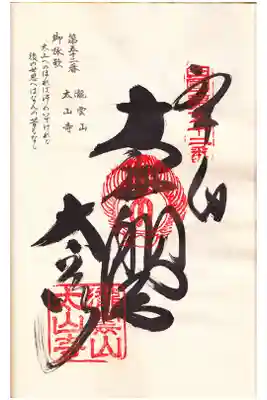 奉納
太山寺
瀧雲山
太山寺
第五十二番 瀧雲山
太山寺
御詠歌
太山へのぼれば汗のいでけれど
後の世思へばなんの苦もなし